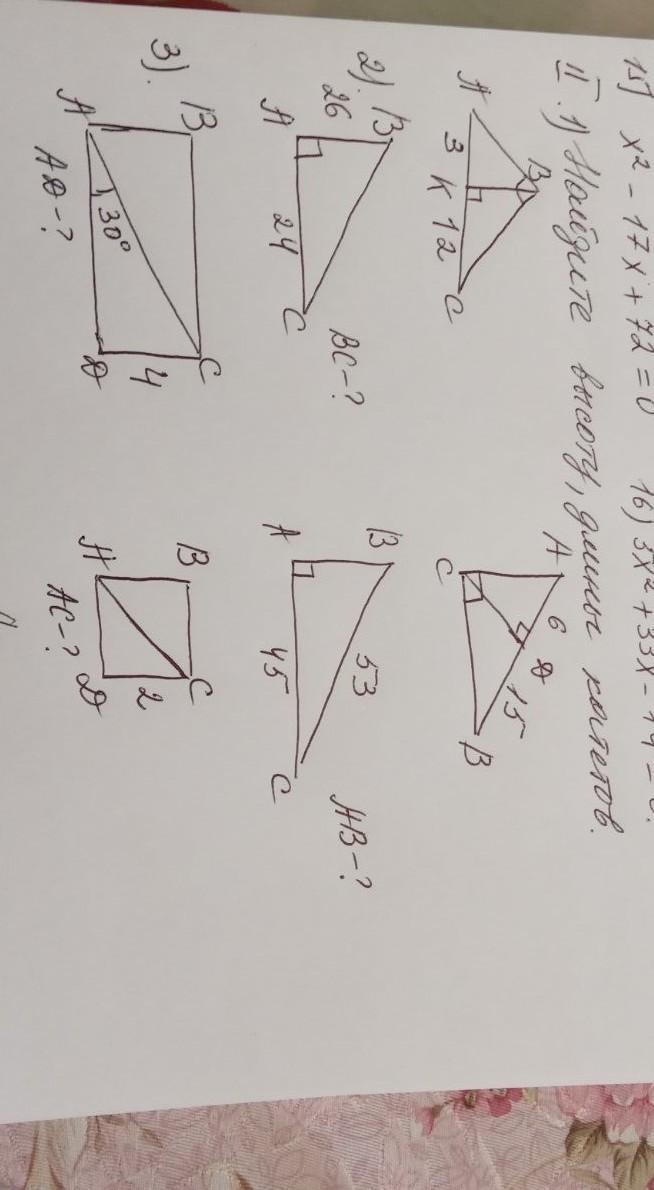 15) x² - 17x + 72 = 0 16) 5x² + 33x - 14 = 0.
II. 1) Найдите высоту, длины катетов.
A 3 K 12 C B
A 6 D 15 B C
2). B 26 A 24 C BC-?
B 53 A 45 C AB-?
3). B C A 30° 4 D AD-?
B C A 2 D AC-?